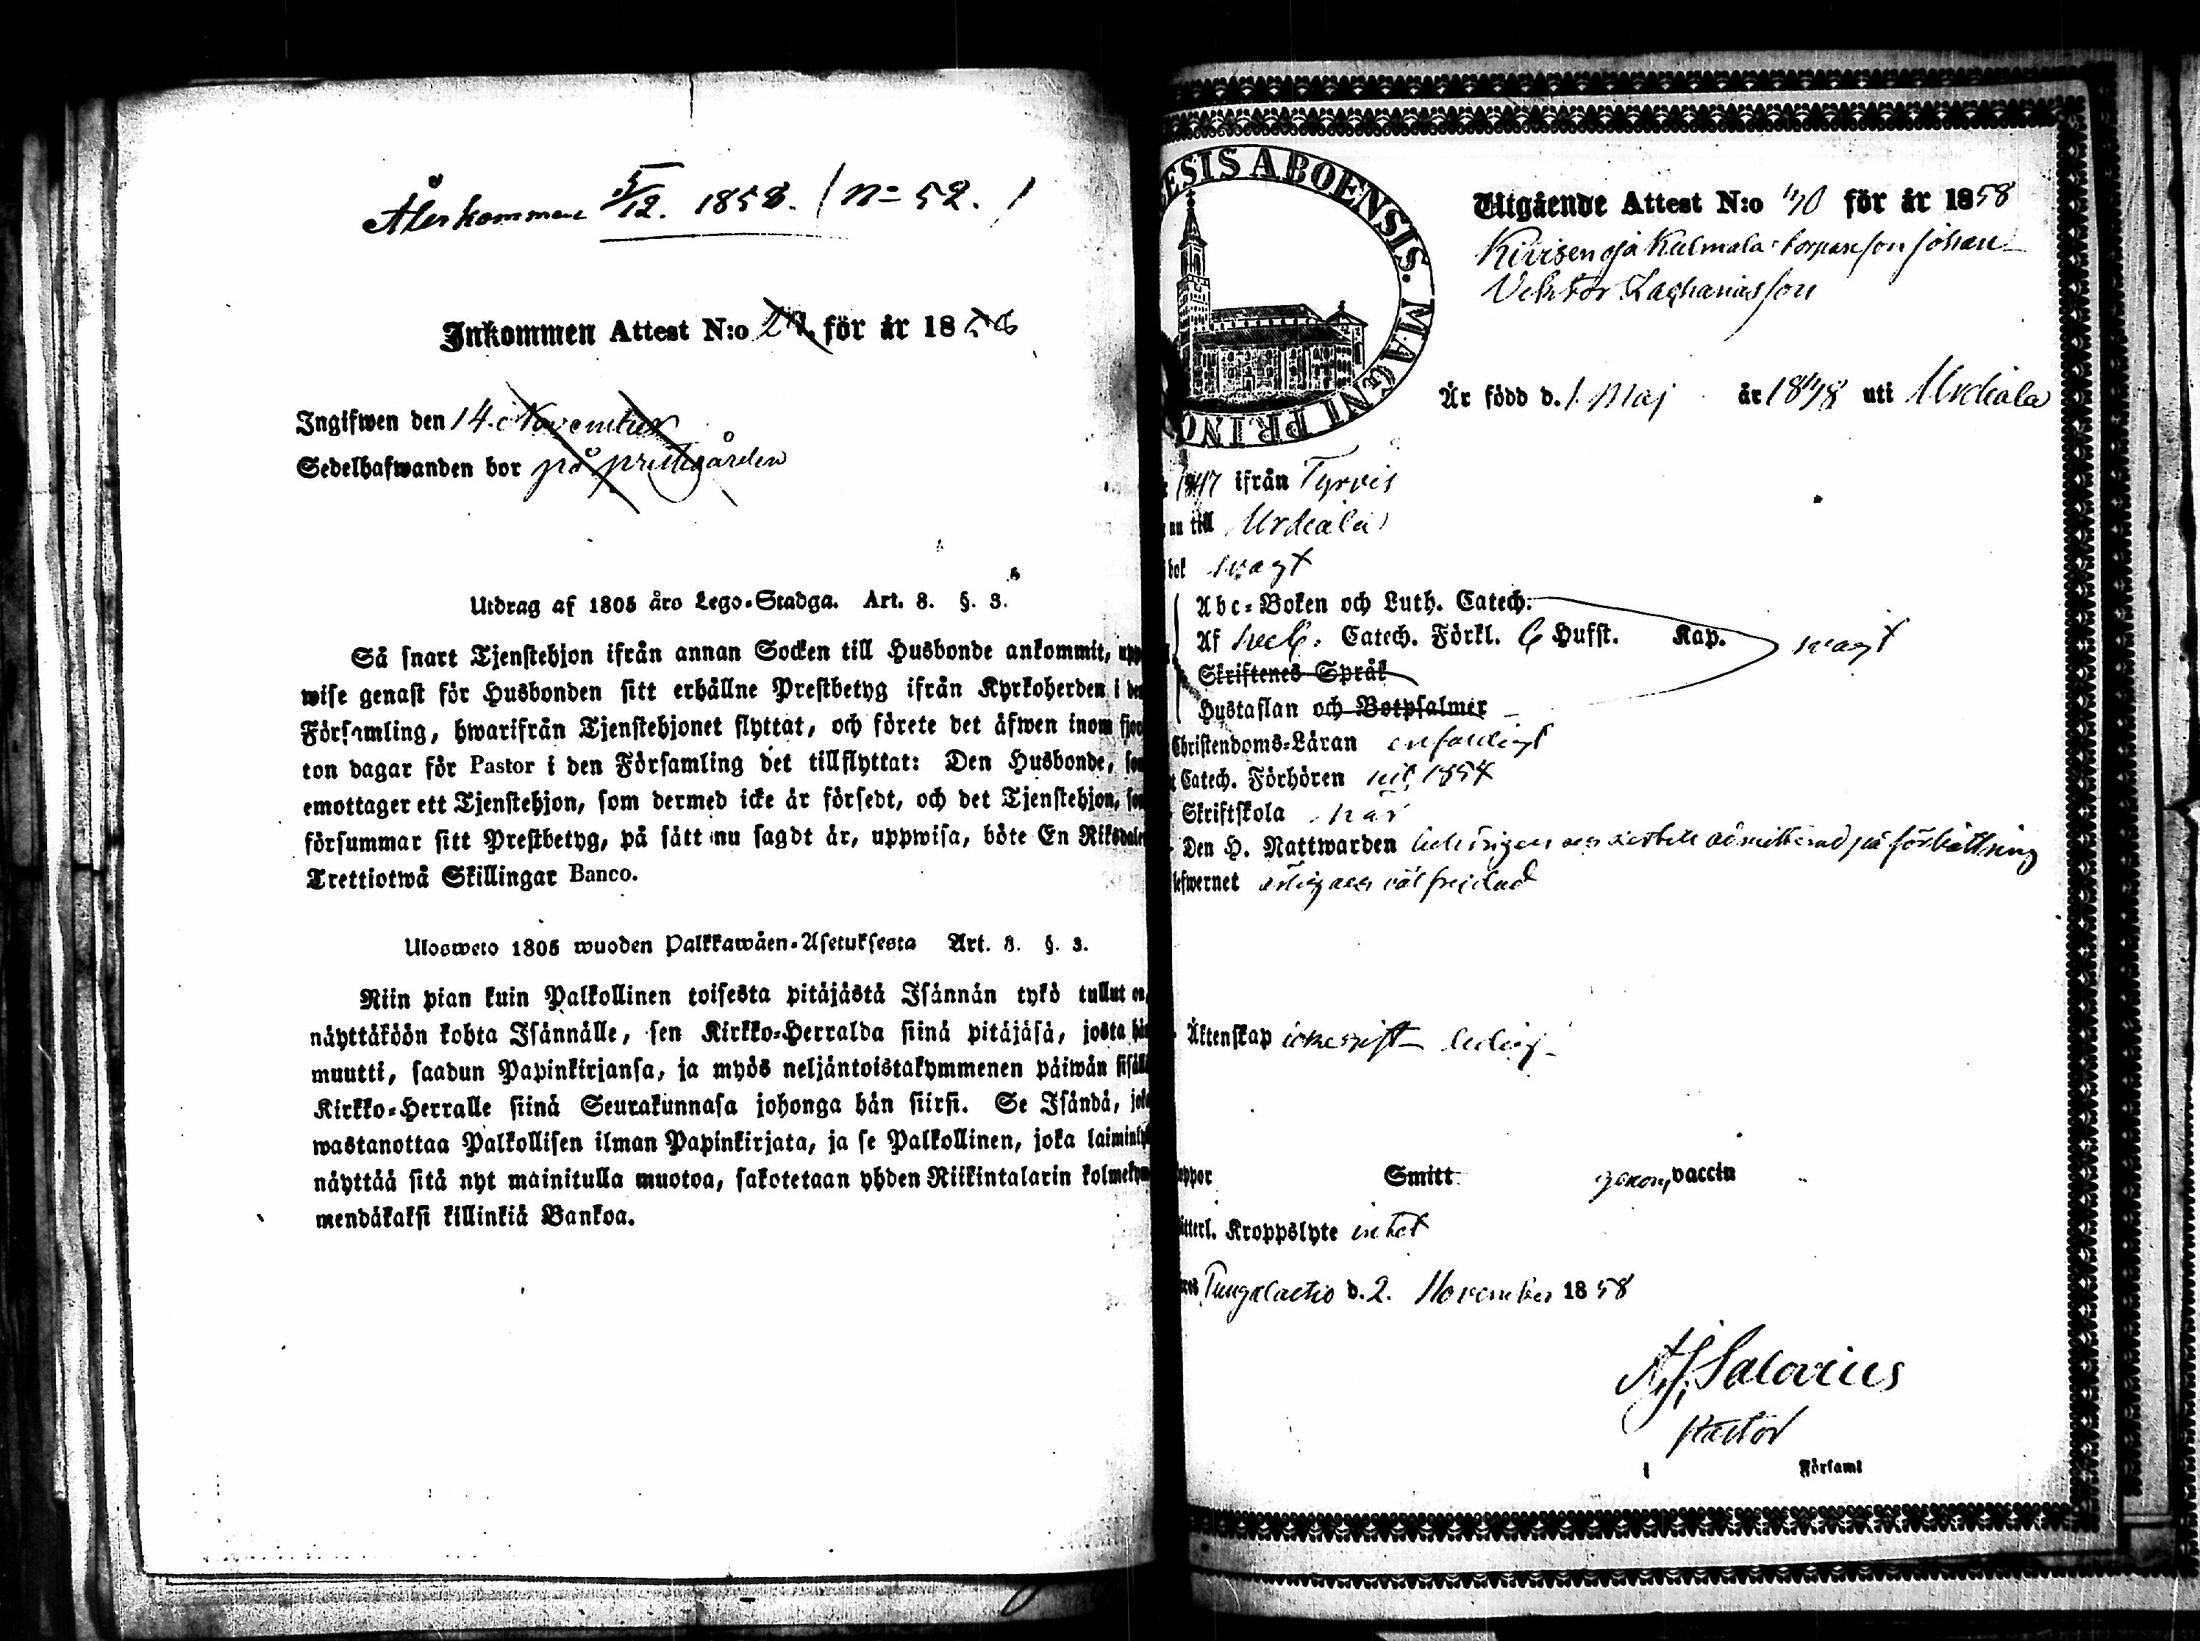 Återkommen 5/12. 1858. (n= 52.)
Inkommen Attest N:o 27. för år 1858
Ingifwen den 14. November
Sedelhafwanden bor på prestgården
Utdrag af 1805 års Lego-Stadga. Art. 8. §. 3.
Så snart Tjenstehjon ifrån annan Socken till Husbonde ankommit, upp
wise genast för Husbonden sitt erhållne Prestbetyg ifrån Kyrkoherden i den
Församling, hwarifrån Tjenstehjonet flyttat, och förete det äfwen inom fjor
ton dagar för Pastor i den Församling det tillflyttat: Den Husbonde, som
emottager ett Tjenstehjon, som dermed icke är försedt, och det Tjenstehjon, som
försummar sitt Prestbetyg, på sätt nu sagdt är, uppwisa, böte En Riksdaler
Trettiotwå Skillingar Banco.
Ulosweto 1805 wuoden Palkkawäen-Asetuksesta Art. 8. §. 3.
Niin pian kuin Palkollinen toisesta pitäjästä Isännän tykö tullut on,
näyttäköön kohta Isännälle, sen Kirkko-Herralda siinä pitäjäsä, josta hän
muutti, saadun Papinkirjansa, ja myös neljäntoistakymmenen päiwän sisällä
Kirkko-Herralle siinä Seurakunnasa johonga hän siirsi. Se Isändä, joka
wastanottaa Palkollisen ilman Papinkirjata, ja se Palkollinen, joka laiminly
näyttää sitä nyt mainitulla muotoa, sakotetaan yhden Riikintalarin kolmekym
mendäkaksi killinkiä Bankoa.
ESIS ABOENSIS. MAGNI PRINC
Utgående Attest N:o 40 för år 1858
Kivisenoja Kulmala torpareson Johan
Viktor Zachariasson
Är född d. 1 Maj år 1848 uti Urdiala
ifrån Tyrvis
nu till Urdiala
bok svagt
Abc-Boken och Luth. Catech.
Af Catech. Förkl. 6 Hufst. Kap. svagt
Skriftenes Språk
Hustaflan och Botpsalmer
Christendoms-Läran enfaldigt
Catech. Förhören 1854
Skriftskola har
Den H. Nattwarden admitterad på förbättring
lefwernet ärlig och väl frejdad
Äktenskap icke gift ledig
oppor Smitt genom vaccin
itterl. Kroppslyte intet
Pungalaitio d. 2. November 1858
A. J. Salovius
Pastor
i Församl